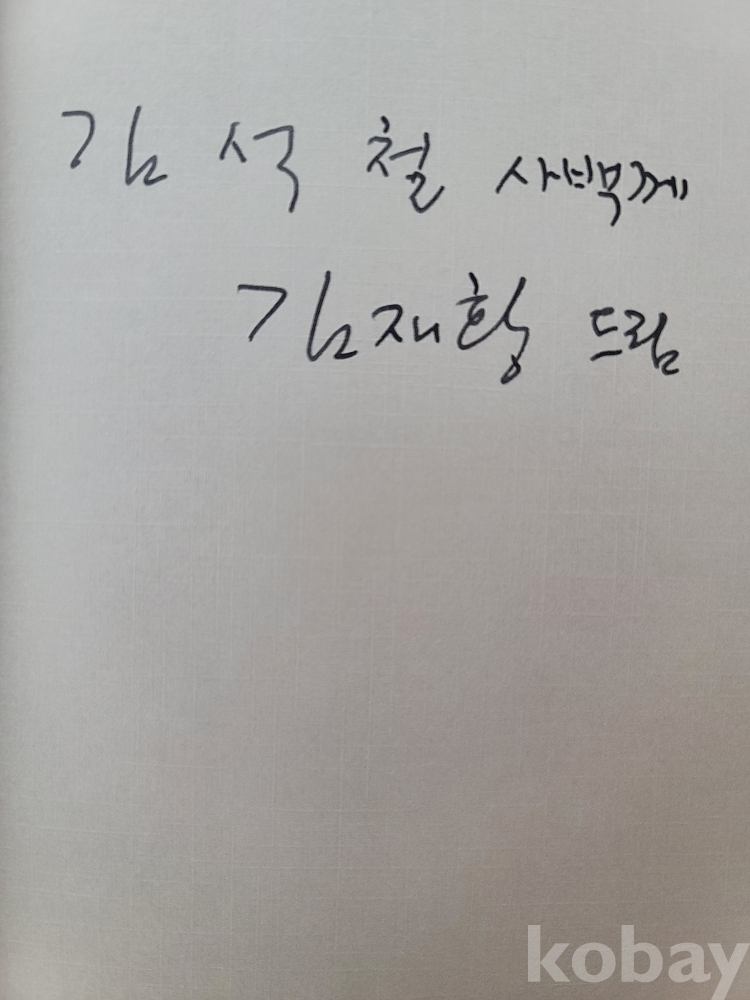 김 석 철 사백께
김재황 드림
kobay